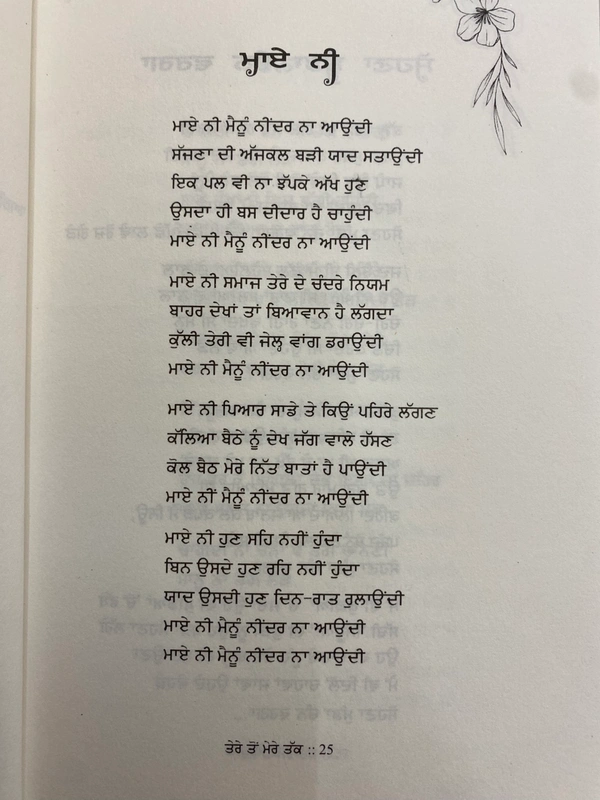 ਮਾਏ ਨੀ
ਮਾਏ ਨੀ ਮੈਨੂੰ ਨੀਂਦਰ ਨਾ ਆਉਂਦੀ
ਸੱਜਣਾ ਦੀ ਅੱਜਕਲ ਬੜੀ ਯਾਦ ਸਤਾਉਂਦੀ
ਇਕ ਪਲ ਵੀ ਨਾ ਝੱਪਕੇ ਅੱਖ ਹੁਣ
ਉਸਦਾ ਹੀ ਬਸ ਦੀਦਾਰ ਹੈ ਚਾਹੁੰਦੀ
ਮਾਏ ਨੀ ਮੈਨੂੰ ਨੀਂਦਰ ਨਾ ਆਉਂਦੀ
ਮਾਏ ਨੀ ਸਮਾਜ ਤੇਰੇ ਦੇ ਚੰਦਰੇ ਨਿਯਮ
ਬਾਹਰ ਦੇਖਾਂ ਤਾਂ ਬਿਆਵਾਨ ਹੈ ਲੱਗਦਾ
ਕੁੱਲੀ ਤੇਰੀ ਵੀ ਜੇਲ੍ਹ ਵਾਂਗ ਡਰਾਉਂਦੀ
ਮਾਏ ਨੀ ਮੈਨੂੰ ਨੀਂਦਰ ਨਾ ਆਉਂਦੀ
ਮਾਏ ਨੀ ਪਿਆਰ ਸਾਡੇ ਤੇ ਕਿਉਂ ਪਹਿਰੇ ਲੱਗਣ
ਕੱਲਿਆ ਬੈਠੇ ਨੂੰ ਦੇਖ ਜੱਗ ਵਾਲੇ ਹੱਸਣ
ਕੋਲ ਬੈਠ ਮੇਰੇ ਨਿੱਤ ਬਾਤਾਂ ਹੈ ਪਾਉਂਦੀ
ਮਾਏ ਨੀਂ ਮੈਨੂੰ ਨੀਂਦਰ ਨਾ ਆਉਂਦੀ
ਮਾਏ ਨੀ ਹੁਣ ਸਹਿ ਨਹੀਂ ਹੁੰਦਾ
ਬਿਨ ਉਸਦੇ ਹੁਣ ਰਹਿ ਨਹੀਂ ਹੁੰਦਾ
ਯਾਦ ਉਸਦੀ ਹੁਣ ਦਿਨ-ਰਾਤ ਰੁਲਾਉਂਦੀ
ਮਾਏ ਨੀ ਮੈਨੂੰ ਨੀਂਦਰ ਨਾ ਆਉਂਦੀ
ਮਾਏ ਨੀ ਮੈਨੂੰ ਨੀਂਦਰ ਨਾ ਆਉਂਦੀ
ਤੇਰੇ ਤੋਂ ਮੇਰੇ ਤੱਕ :: 25